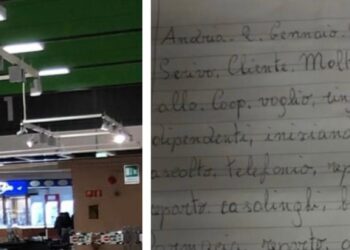 1
Andria. 2. Gennaio.
Scrivo. Cliente. Molt
alla. Coop. voglio, rin
dipendenti, iniziand
ascolto, telefonio, rep
reparto casalinghi, b